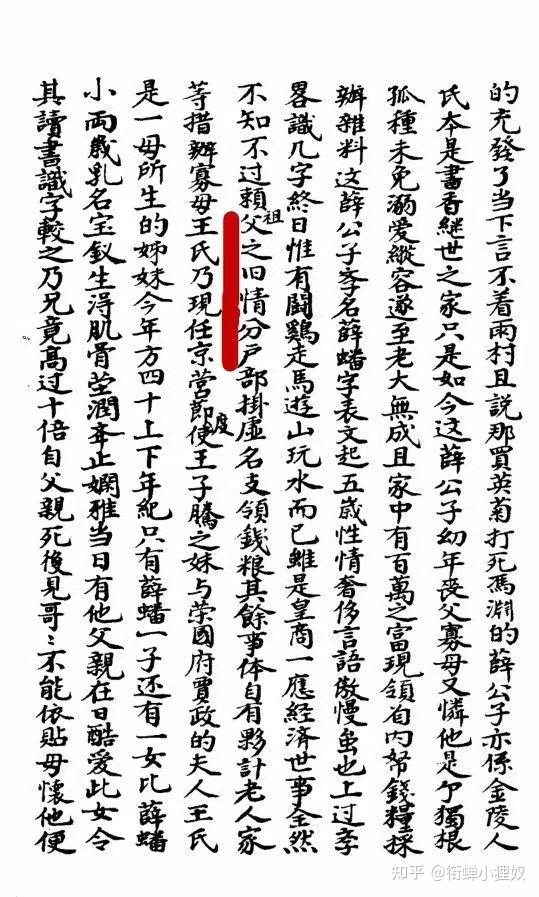 的充發了当下言不着雨村且說那買英菊打死馮淵的薛公子亦係金陵人
氏夲是書香継世之家只是如今这薛公子幼年丧父寡母又憐他是个獨根
孤種未免溺爱縱容遂至老大無成且家中有百萬之富現領着内帑錢糧採
辦雜料这薛公子斈名薛蟠字表文起五歲性情奢侈言語傲慢虽也上过斈
畧識几字終日惟有鬪鷄走馬遊山玩水而已雖是皇商一應経済世事全然
不知不过頼祖父之旧情分户部掛虚名支領錢粮其餘事体自有夥計老人家
等措辦寡母王氏乃現任京营節度使王子騰之妹与荣國府賈政的夫人王氏
是一母所生的姊妹今年方四十上下年紀只有薛蟠一子还有一女比薛蟠
小兩歲乳名宝釵生淂肌骨莹潤举止嫻雅当日有他父親在日酷爱此女令
其讀書識字較之乃兄竟高过十倍自父親死後見哥〻不能依貼母懷他便
知乎 @衔蝉小狸奴